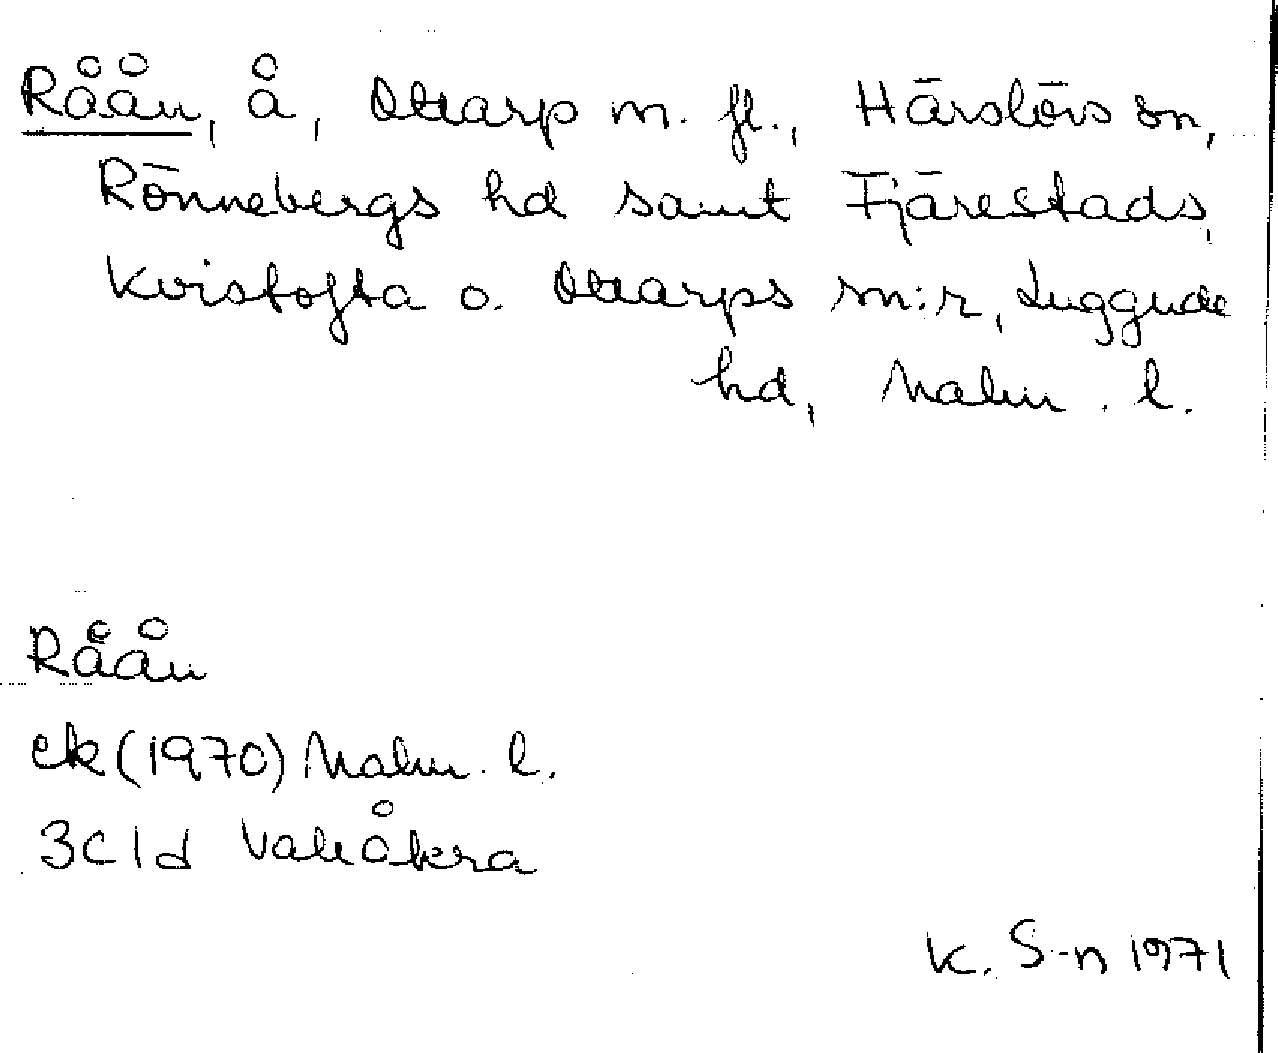 Råån, å, Ottarp m. fl., Härslövs sn,
Rönnebergs hd samt Fjärestads,
Kvistofta o. Ottarps sn:r, Luggude
hd, Malm. l.
Råån
ek (1970) Malm. l.
3C 1d Vallåkra
K. S-n 1971